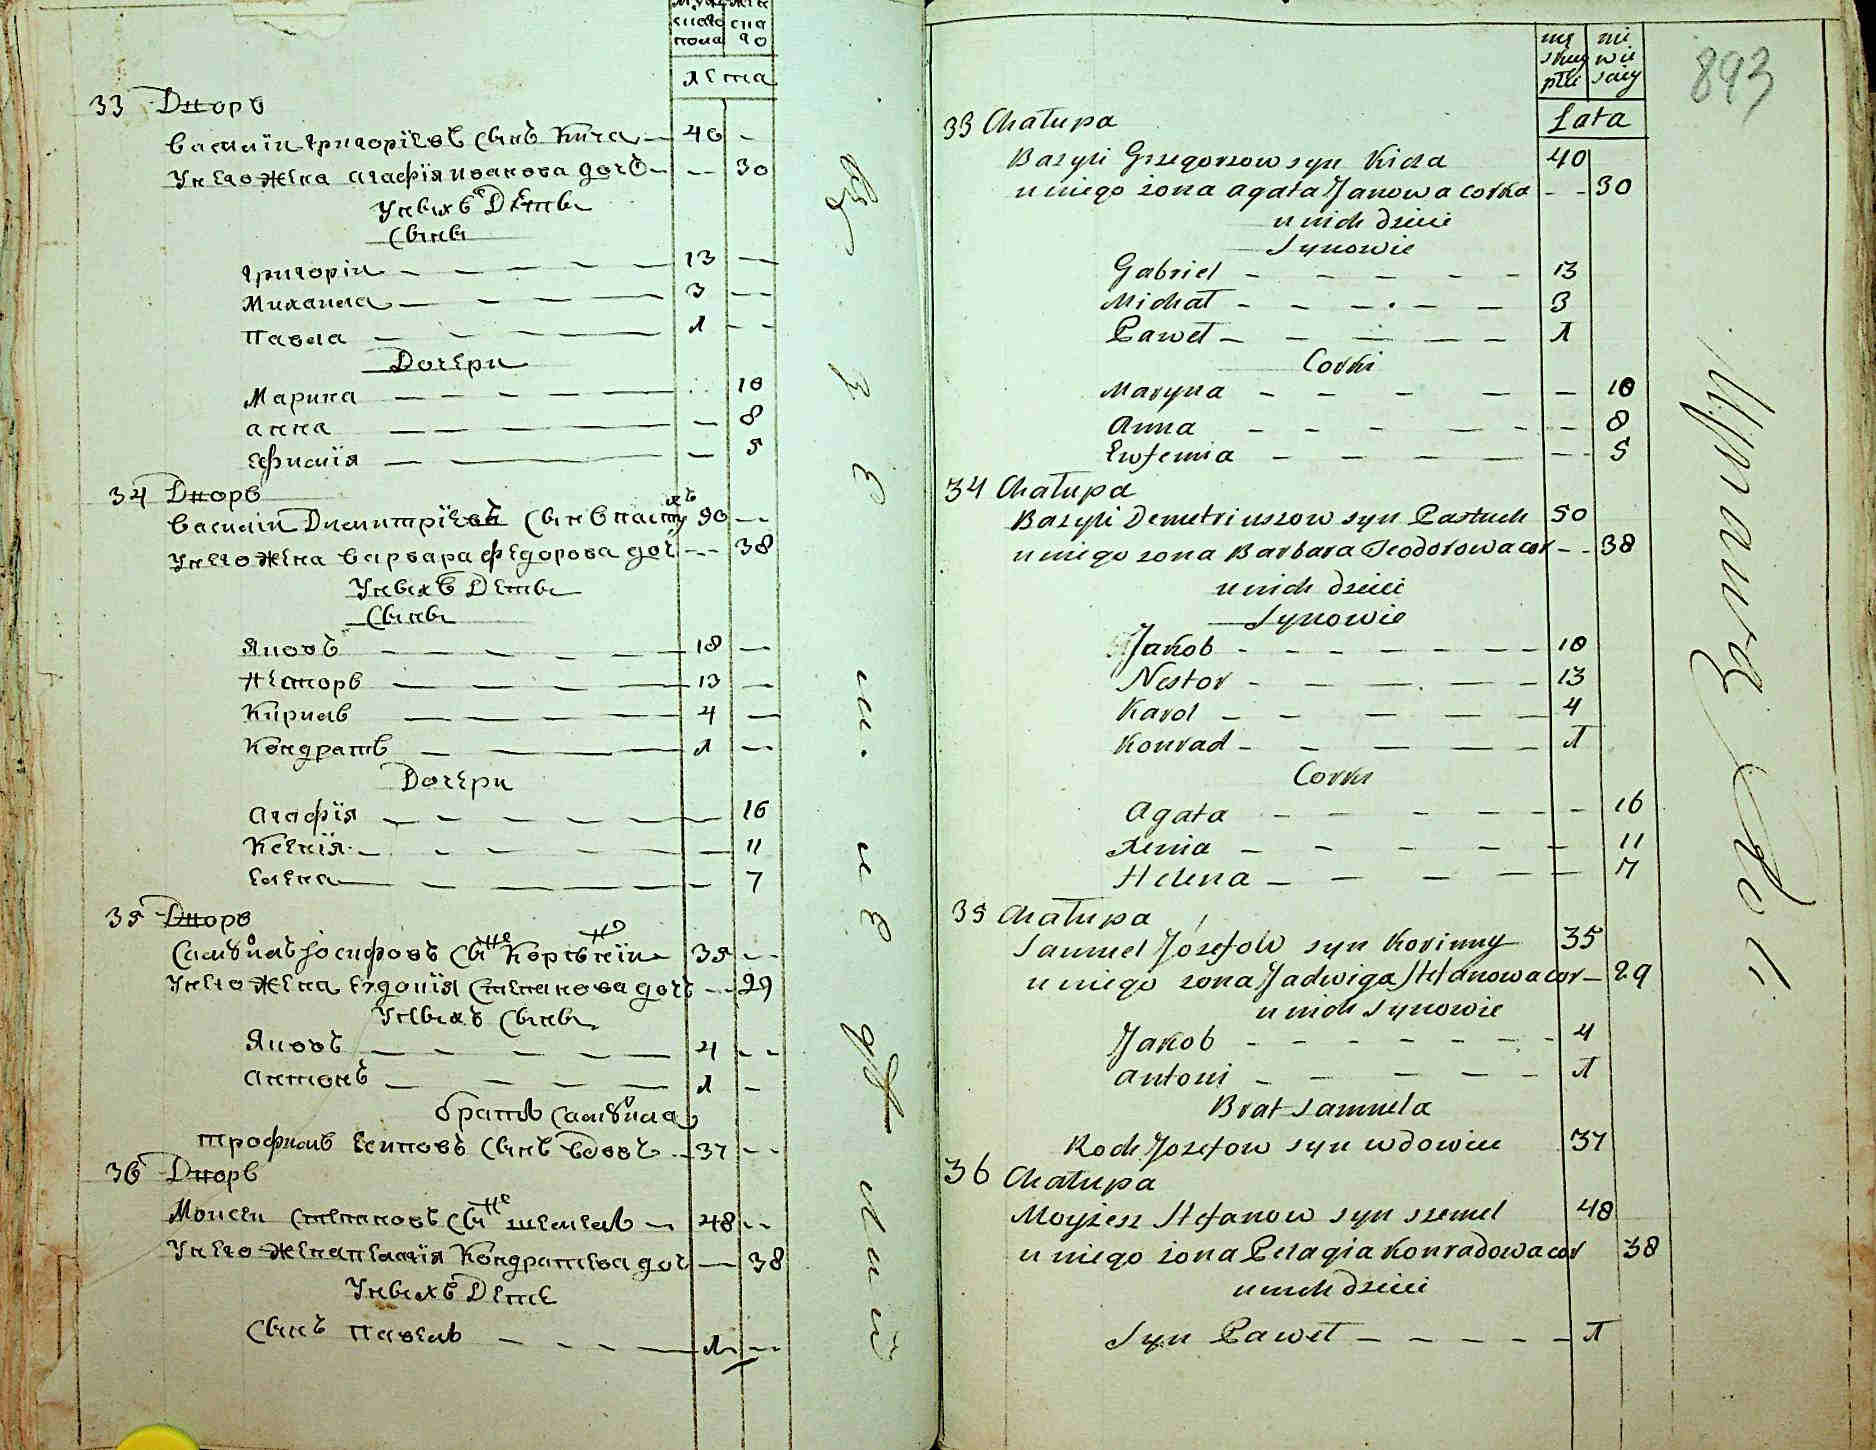 33 Дворъ
лѣта
Василій Григоріевъ сынъ Кича 40
У него жена Агафія Иванова дочь 30
У ныхъ Дѣти
Сыны
Григорій 13
Михаила 3
Павла 1
Дочери
Марина 10
Анна 8
Ефимія 5
34 Дворъ
Василій Димитріевъ сынъ Пастухъ 50
У него жена Варвара Федорова доч 38
У ныхъ Дети
Сыны
Яковъ 18
Несторъ 13
Кирилъ 4
Кондратъ 1
Дочери
Агафія 16
Ксенія 11
Елена 7
35 Дворъ
Самойлъ Іосифовъ сынъ 35
У него жена Евдокія Степанова дочь 29
У ныхъ сыны
Яковъ 4
Антонъ 1
братъ Самойла
Трофимъ Есиповъ сынъ вдовъ 37
36 Дворъ
Моисей Степановъ сынъ шемелъ 48
У него жена Пелагія Кондратева доч 38
У ныхъ Дете
Сынъ Павелъ 1
893
męskiey płci niewiesciey
Lata
33 Chałupa
Bazyli Grzegorzow syn Kicza 40
u niego żona agata Janowa corka 30
u nich dzieci
Synowie
Gabriel 13
Michał 3
Paweł 1
Corki
Maryna 10
Anna 8
Eufemia 5
34 Chałupa
Bazyli Demetriuszow syn Pastuch 50
u niego zona Barbara Teodorowa cor 38
u nich dzieci
Synowie
Jakob 18
Nestor 13
Karol 4
Konrad 1
Corki
Agata 16
Xenia 11
Helena 7
35 Chałupa
Samuel Józefow syn Korinny 35
u niego zona Jadwiga Stefanowa cor 29
u nich synowie
Jakob 4
antoni 1
Brat Samuela
Roch Jozefow syn wdowiec 37
36 Chałupa
Moyżesz Stefanow syn szemel 48
u niego żona Pelagia Konradowa cor 38
u nich dzieci
Syn Paweł 1